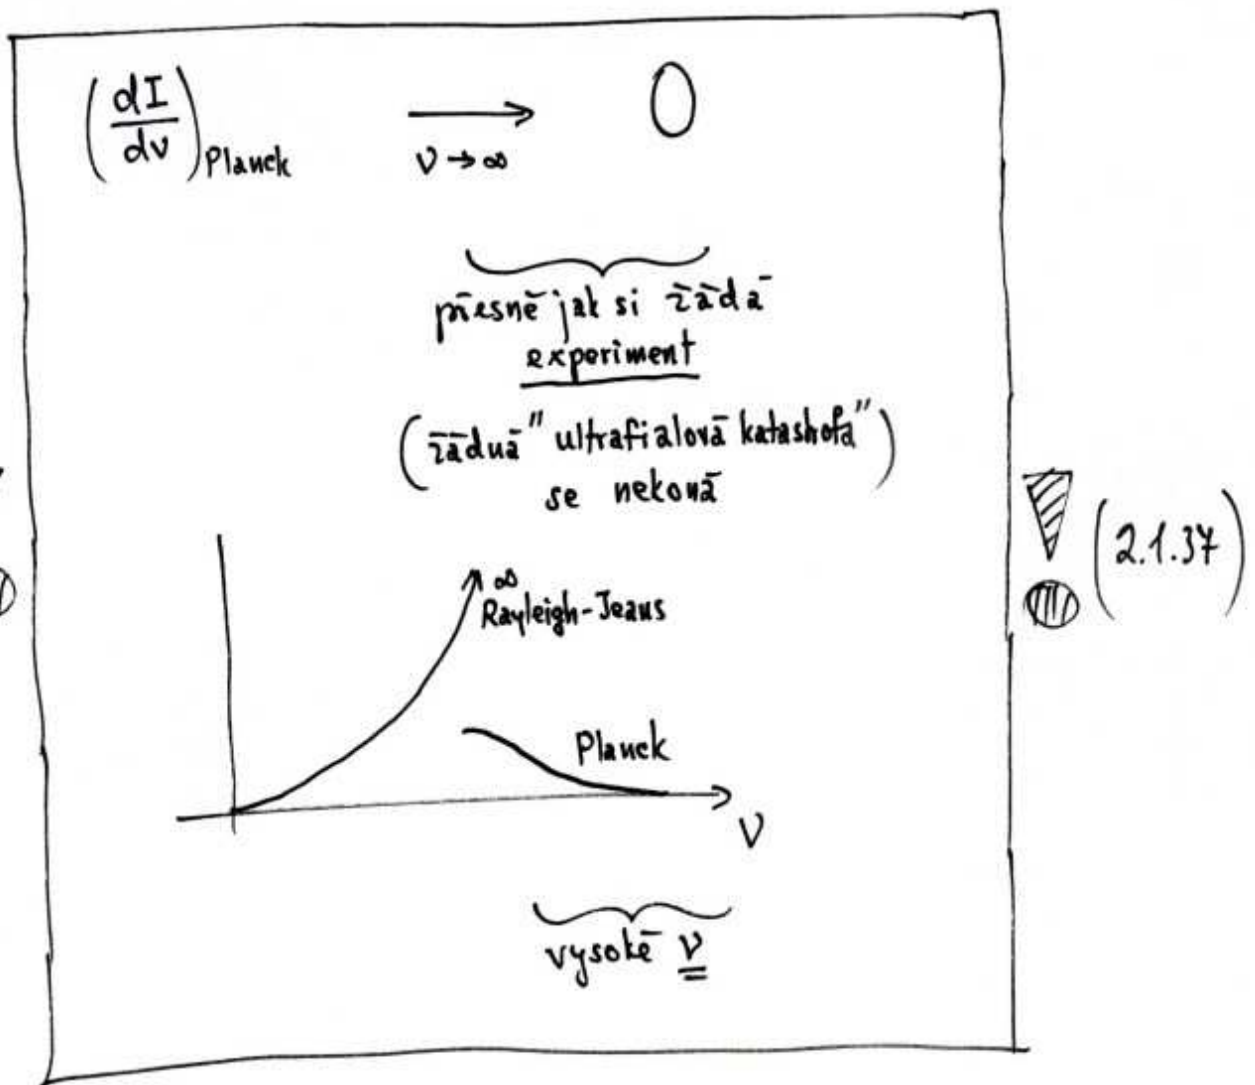 (dI/dν)Planck → ν→∞ 0
přesně jak si žádá
experiment
(žádná "ultrafialová katastrofa"
se nekoná)
∞
Rayleigh-Jeans
(2.1.37)
Planck
ν
vysoké ν